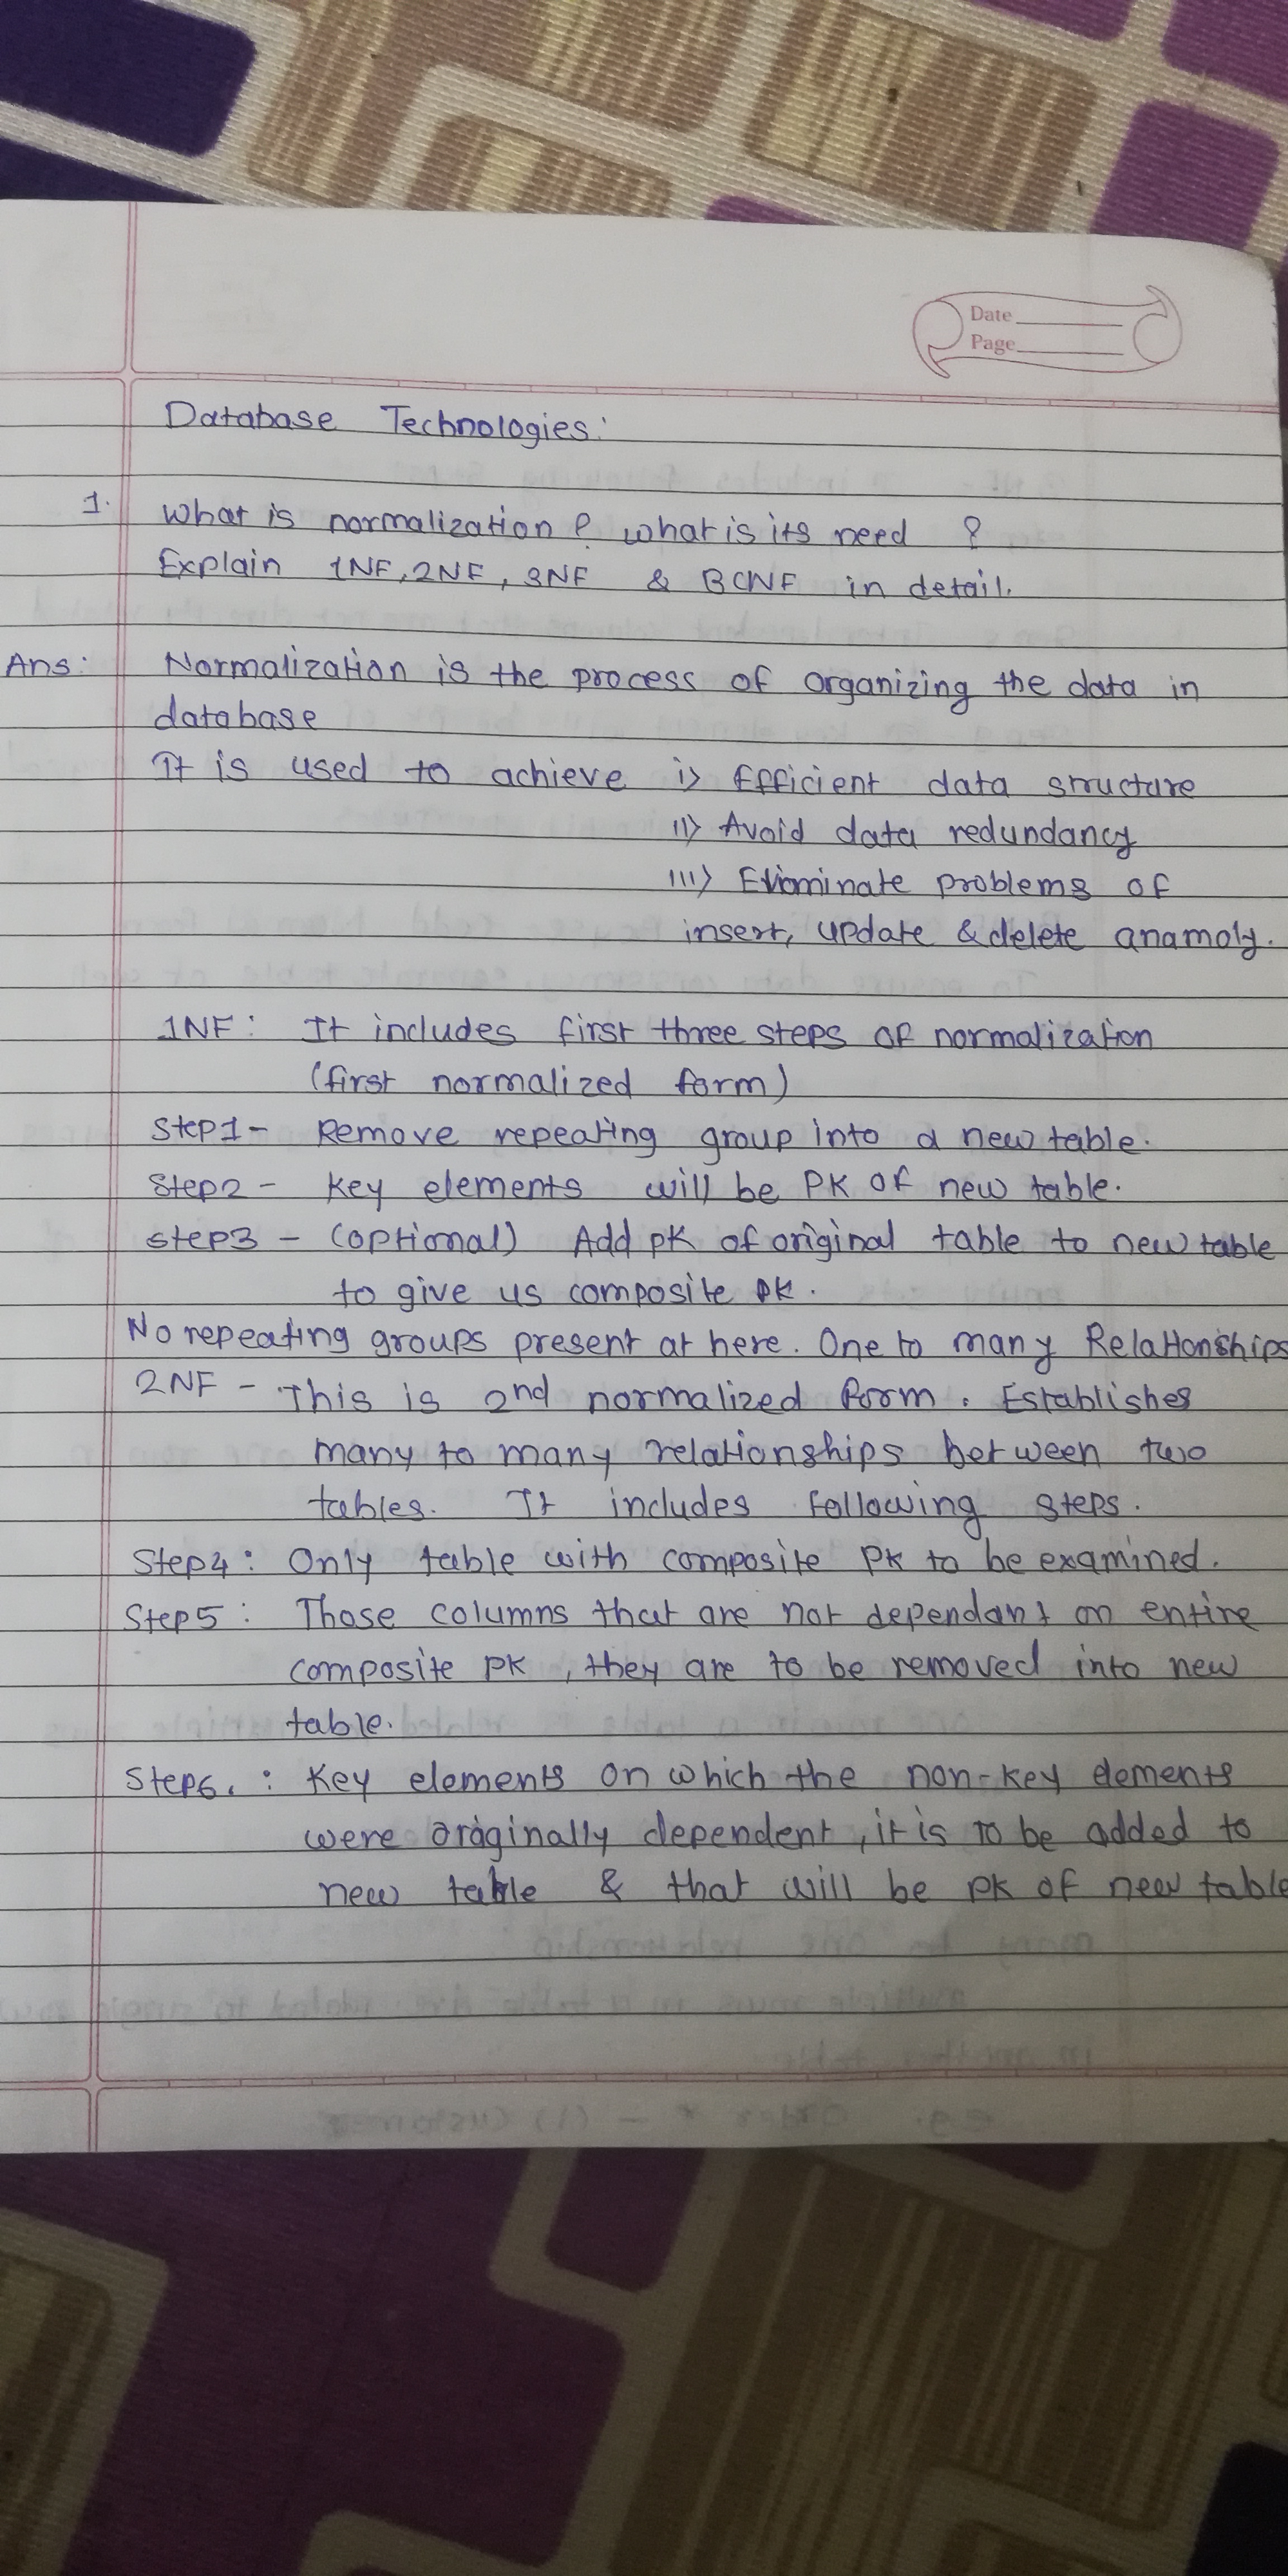 Date
Page
Database Technologies:
1. What is normalization? what is its need ?
Explain 1NF, 2NF, 3NF & BCNF in detail.
Ans: Normalization is the process of organizing the data in
database
It is used to achieve i> Efficient data structure
ii> Avoid data redundancy
iii> Eliminate problems of
insert, update & delete anamoly.
1NF: It includes first three steps of normalization
(first normalized form)
Step1- Remove repeating group into a new table.
Step2 - Key elements will be PK of new table.
Step3 - (optional) Add PK of original table to new table
to give us composite PK.
No repeating groups present at here. One to many Relationships
2NF - This is 2nd normalized form. Establishes
many to many relationships between two
tables. It includes following steps.
Step4: Only table with composite PK to be examined.
Step5: Those columns that are not dependant on entire
composite PK, they are to be removed into new
table.
Step6. : Key elements on which the non-key elements
were originally dependent, it is to be added to
new table & that will be PK of new table